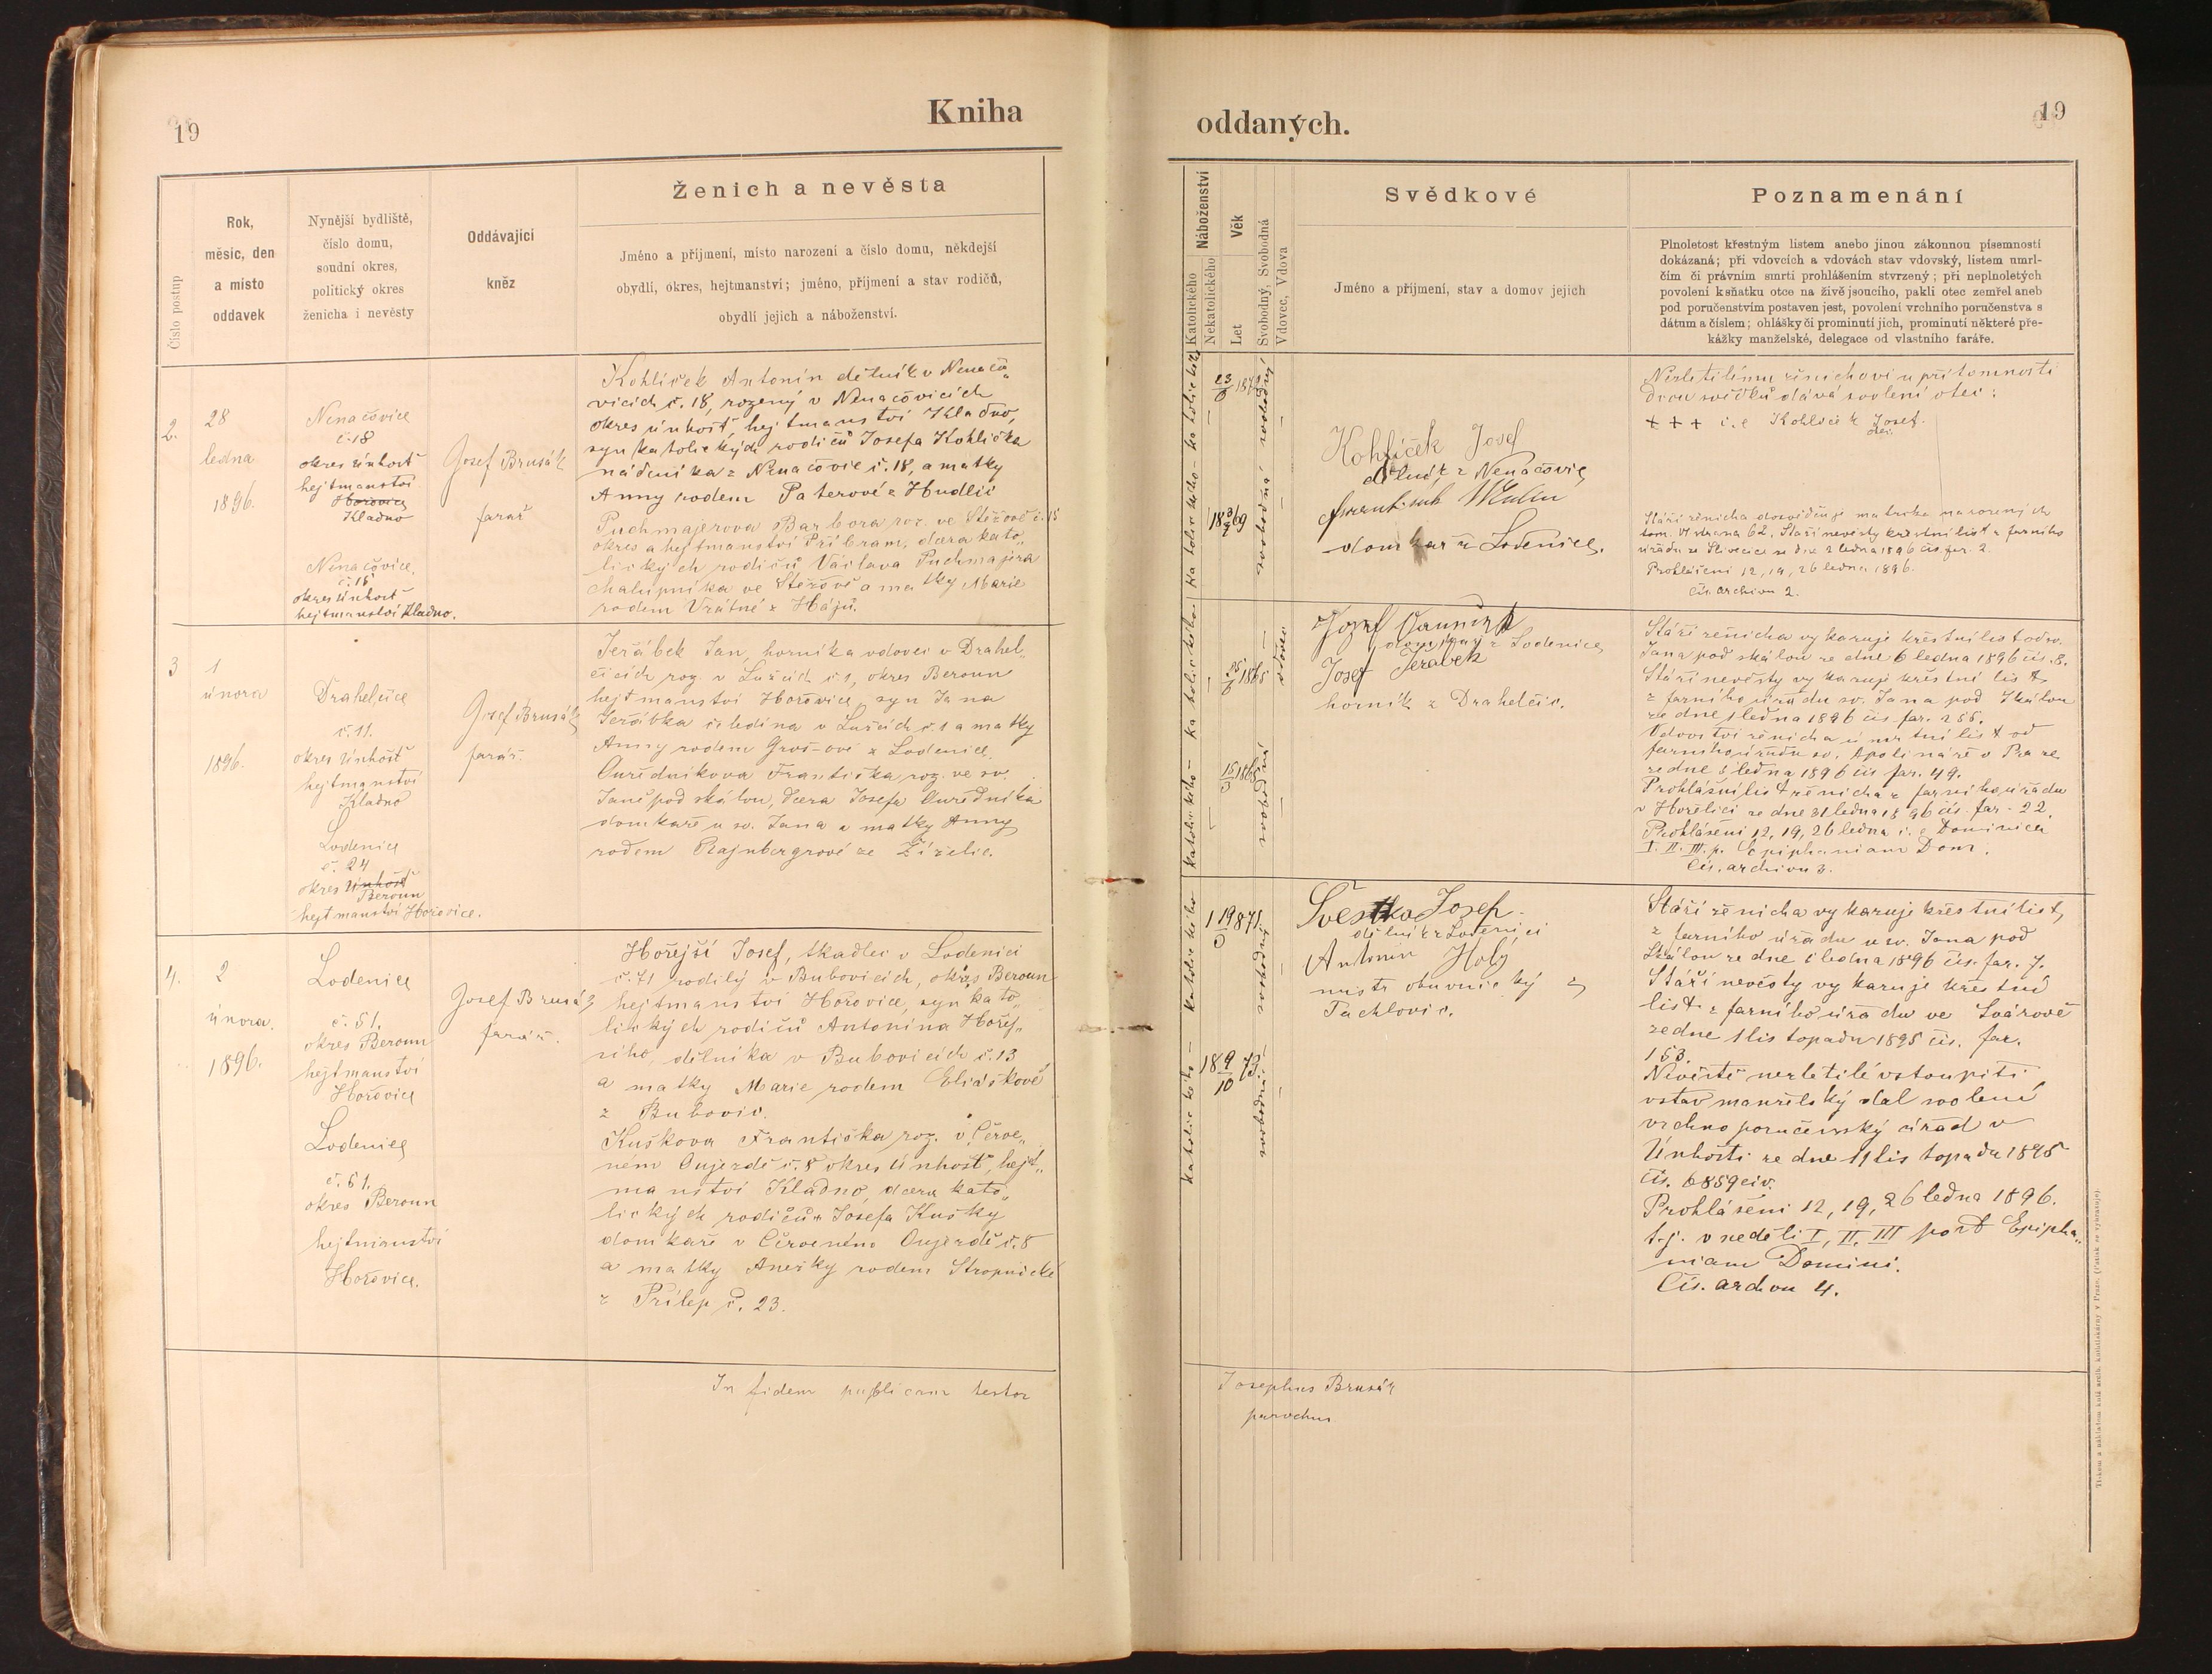 19
Kniha
Číslo postup
Rok,
měsíc, den
a místo
oddavek
Nynější bydliště,
číslo domu,
soudní okres,
politický okres
ženicha i nevěsty
Oddávající
kněz
Ženich a nevěsta
Jméno a příjmení, místo narození a číslo domu, někdejší
obydlí, okres, hejtmanství; jméno, příjmení a stav rodičů,
obydlí jejich a náboženství.
2.
28
ledna
1896.
Nenačovice
č. 18
okres Únhošť
hejtmanství
Hořovice
Kladno
Nenačovice
č. 18
okres Únhošť
hejtmanství Kladno.
Josef Brusák
farář
Kohlíček Antonín dělník v Nenačo„
vicích č. 18, rozený v Nenačovicích
okres Únhošť, hejtmanství Kladno,
syn katolických rodičů Josefa Kohlíčka
nádeníka z Nenačovic č. 18, a matky
Anny rodem Paterové z Hudlic
Puchmajerova Barbora roz. ve Stěžově č. 15
okres a hejtmanství Příbram, dcera kato„
lických rodičů Václava Puchmajera
chalupníka ve Stěžově a matky Marie
rodem Vrátné z Hájů.
3
1
února
1896.
Drahelčice
č. 11.
okres Únhošť
hejtmanství
Kladno
Lodenice
č. 24
okres Únhošť
Beroun
hejtmanství Hořovice.
Josef Brusák
farář.
Jeřábek Jan, horník a vdovec v Drahel„
čicích roz. v Lužcích č. 1, okres Beroun
hejtmanství Hořovice, syn Jana
Jeřábka čeledína v Lužcích č. 1 a matky
Anny rodem Grosové z Lodenice.
Ouředníkova Františka roz. ve sv.
Janě pod skálou, dcera Josefa Ouředníka
domkaře u sv. Jana a matky Anny
rodem Rajnbergrové ze Žíželic.
4.
2
února.
1896.
Lodenice
č. 51.
okres Beroun
hejtmanství
Hořovice
Lodenice
č. 51.
okres Beroun
hejtmanství
Hořovice.
Josef Brusák
farář.
Hořejší Josef, tkadlec v Lodenici
č. 71 rodilý v Bubovicích, okres Beroun
hejtmanství Hořovice, syn kato„
lických rodičů Antonína Hořej„
šího, dělníka v Bubovicích č. 13
a matky Marie rodem Eliáškové
z Bubovic.
Kuškova Františka roz. v Červe„
ném Oujezdě č. 8 okres Únhošť, hejt„
manství Kladno, dcera kato„
lických rodičů Josefa Kušky
domkaře v Červeném Oujezdě č. 8
a matky Anežky rodem Stropnické
z Přílep č. 23.
In fidem publicam testor
oddaných.
19
Náboženství
Katolického
Nekatolického
Věk
Let
Svobodný, Svobodná
Vdovec, Vdova
Svědkové
Jméno a příjmení, stav a domov jejich
Poznamenání
Plnoletost křestným listem anebo jinou zákonnou písemností
dokázaná; při vdovcích a vdovách stav vdovský, listem umrl-
čím či právním smrti prohlášením stvrzený; při neplnoletých
povolení k sňatku otce na živě jsoucího, pakli otec zemřel aneb
pod poručenstvím postaven jest, povolení vrchního poručenstva s
dátum a číslem; ohlášky či prominutí jich, prominutí některé pře-
kážky manželské, delegace od vlastního faráře.
svobodný
svobodná
Kohlíček Josef
dělník z Nenačovic
domkař z Lodenice.
Nezletilému ženichovi u přítomnosti
dvou svědků dává svolení otec:
+++ i.e Kohlíček Josef.
otec.
Stáří ženicha dosvědčuje matrika narozených
tom. VI strana 62. Stáří nevěsty křestní list z farního
úřadu ze Slivenice ze dne 2 ledna 1896 čís. far. 2.
Prohlášení 12, 19, 26 ledna 1896.
čís. archivu 2.
vdovec
svobodná
domkář z Lodenice
Josef Jeřábek
horník z Drahelčic.
Stáří ženicha vykazuje křestní list od sv.
Jana pod skálou ze dne 6 ledna 1896 čís. 8.
Stáří nevěsty vykazuje křestní list
z farního úřadu sv. Jana pod Skálou
ze dne 1 ledna 1896 čís. far. 255.
Vdovství ženicha úmrtní list od
farního úřadu sv. Apolináře v Praze
ze dne 3 ledna 1896 čís far. 49.
Prohlášní list ženicha z farního úřadu
v Hořelici ze dne 31 ledna 1896 čís. far. 22.
Prohlášení 12, 19, 26 ledna i. e Dominica
I. II. III. p. Epiphaniam Dom.
Čís. archivu 3.
svobodný
svobodná
Švestka Josef
dělník z Lodenici
Antonín Holý
mistr obuvnický z
Tachlovic.
Stáří ženicha vykazuje křestní list,
z farního úřadu u sv. Jana pod
Skálou ze dne 1 ledna 1896 čís. far. 7.
Stáří nevěsty vykazuje křestní
list z farního úřadu ve Svárově
ze dne 1 listopadu 1895 čís. far.
153.
Nevěstě nezletilé vstoupiti
v stav manželský dal svolení
vrchnoporučenský úřad v
Únhošti ze dne 11 listopadu 1895
čís. 6859 civ.
Prohlášení 12, 19, 26 ledna 1896.
t. j. v neděli I, II, III post Epipha„
niam Domini.
Čís. archvu 4.
Josephus Brusák
parochus